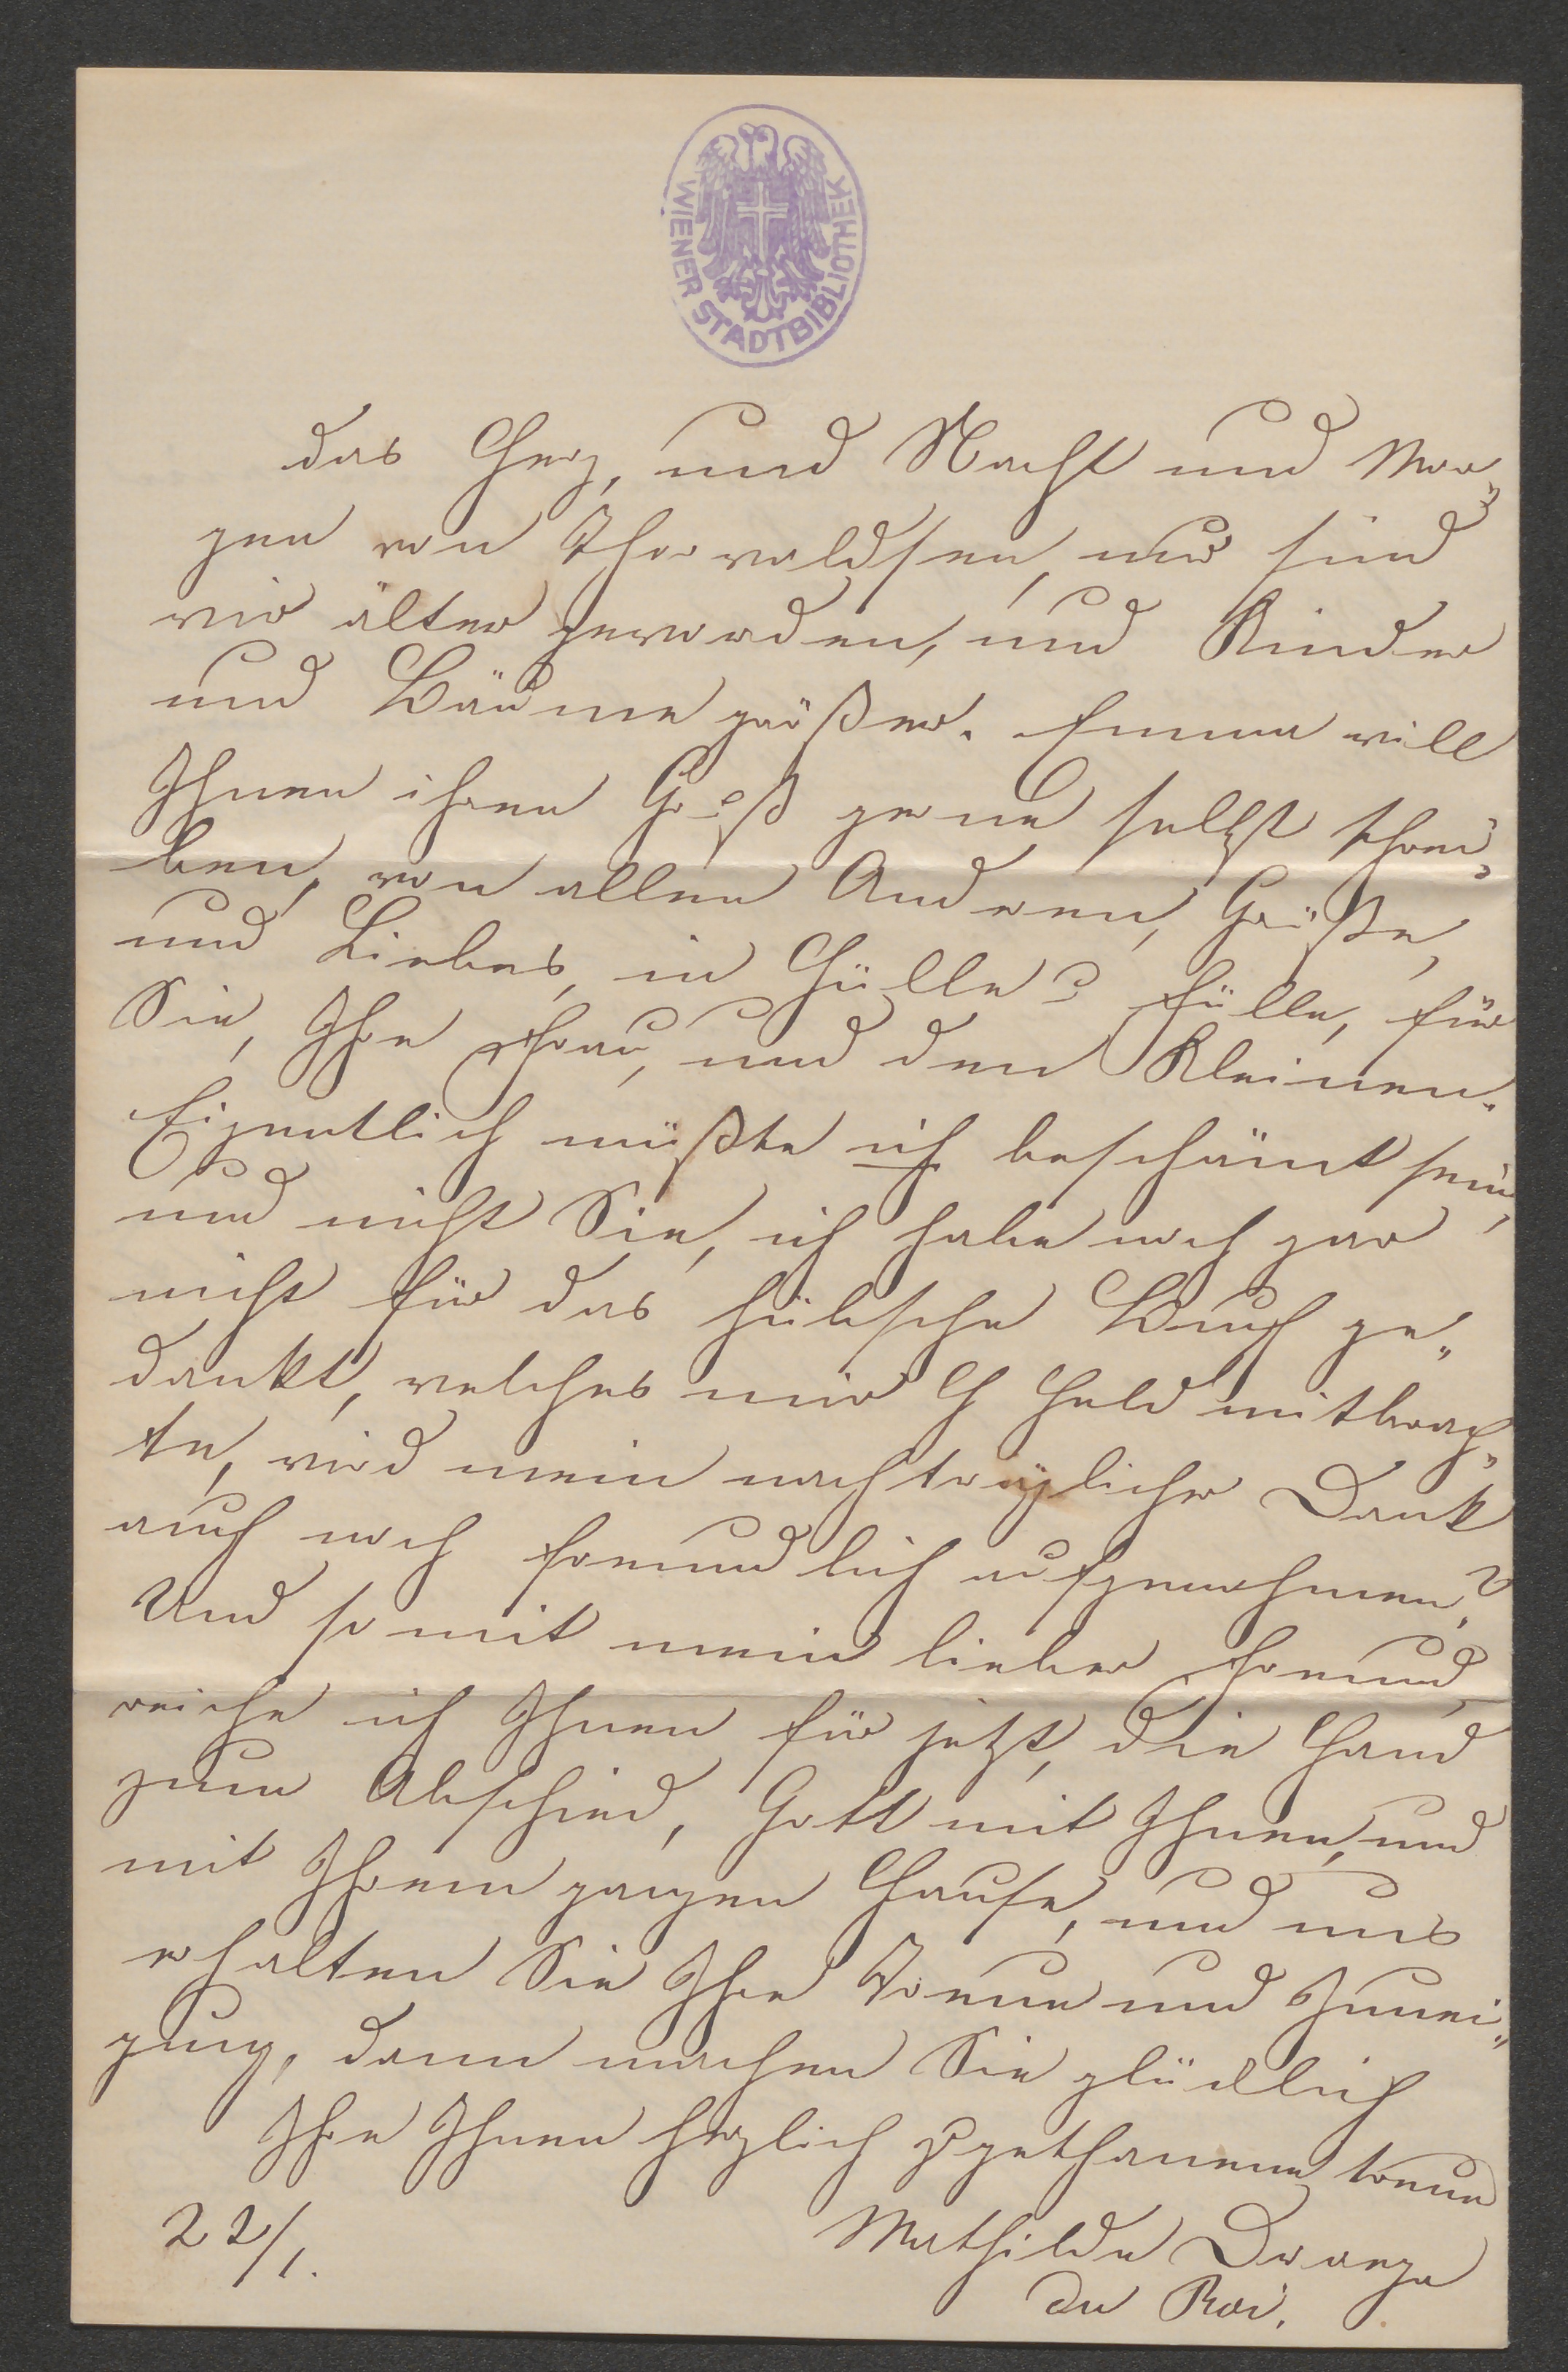 WIENER STADTBIBLIOTHEK
das Herz, und Nacht und Mor„
gen von Thorvaldsen, nur sind
wir älter geworden, und Kinder
und Bäume größer. Emma will
Ihnen ihren Gruß gerne selbst schrei„
ben, von allen Anderen, Grüße,
und Liebes, in Hülle & Fülle, für
Sie, Ihre Frau, und den Kleinen.
Eigentlich müßte ich beschämt sein,
und nicht Sie, ich habe noch gar
nicht für das hübsche Buch ge„
dankt, welches mir H Held mitbrach„
te, wird mein nachträglicher Dank
auch noch freundlich aufgenohmen?
Und so mit mein lieber Freund,
reiche ich Ihnen für jetzt, die Hand
zum Abschied, Gott mit Ihnen, und
mit Ihrem ganzen Hause, und uns
erhalten Sie Ihre Treue und Zunei„
gung, dann machen Sie glücklich
Ihre Ihnen herzlich zugethanene, treue
22/1. Mathilde
du Roi.